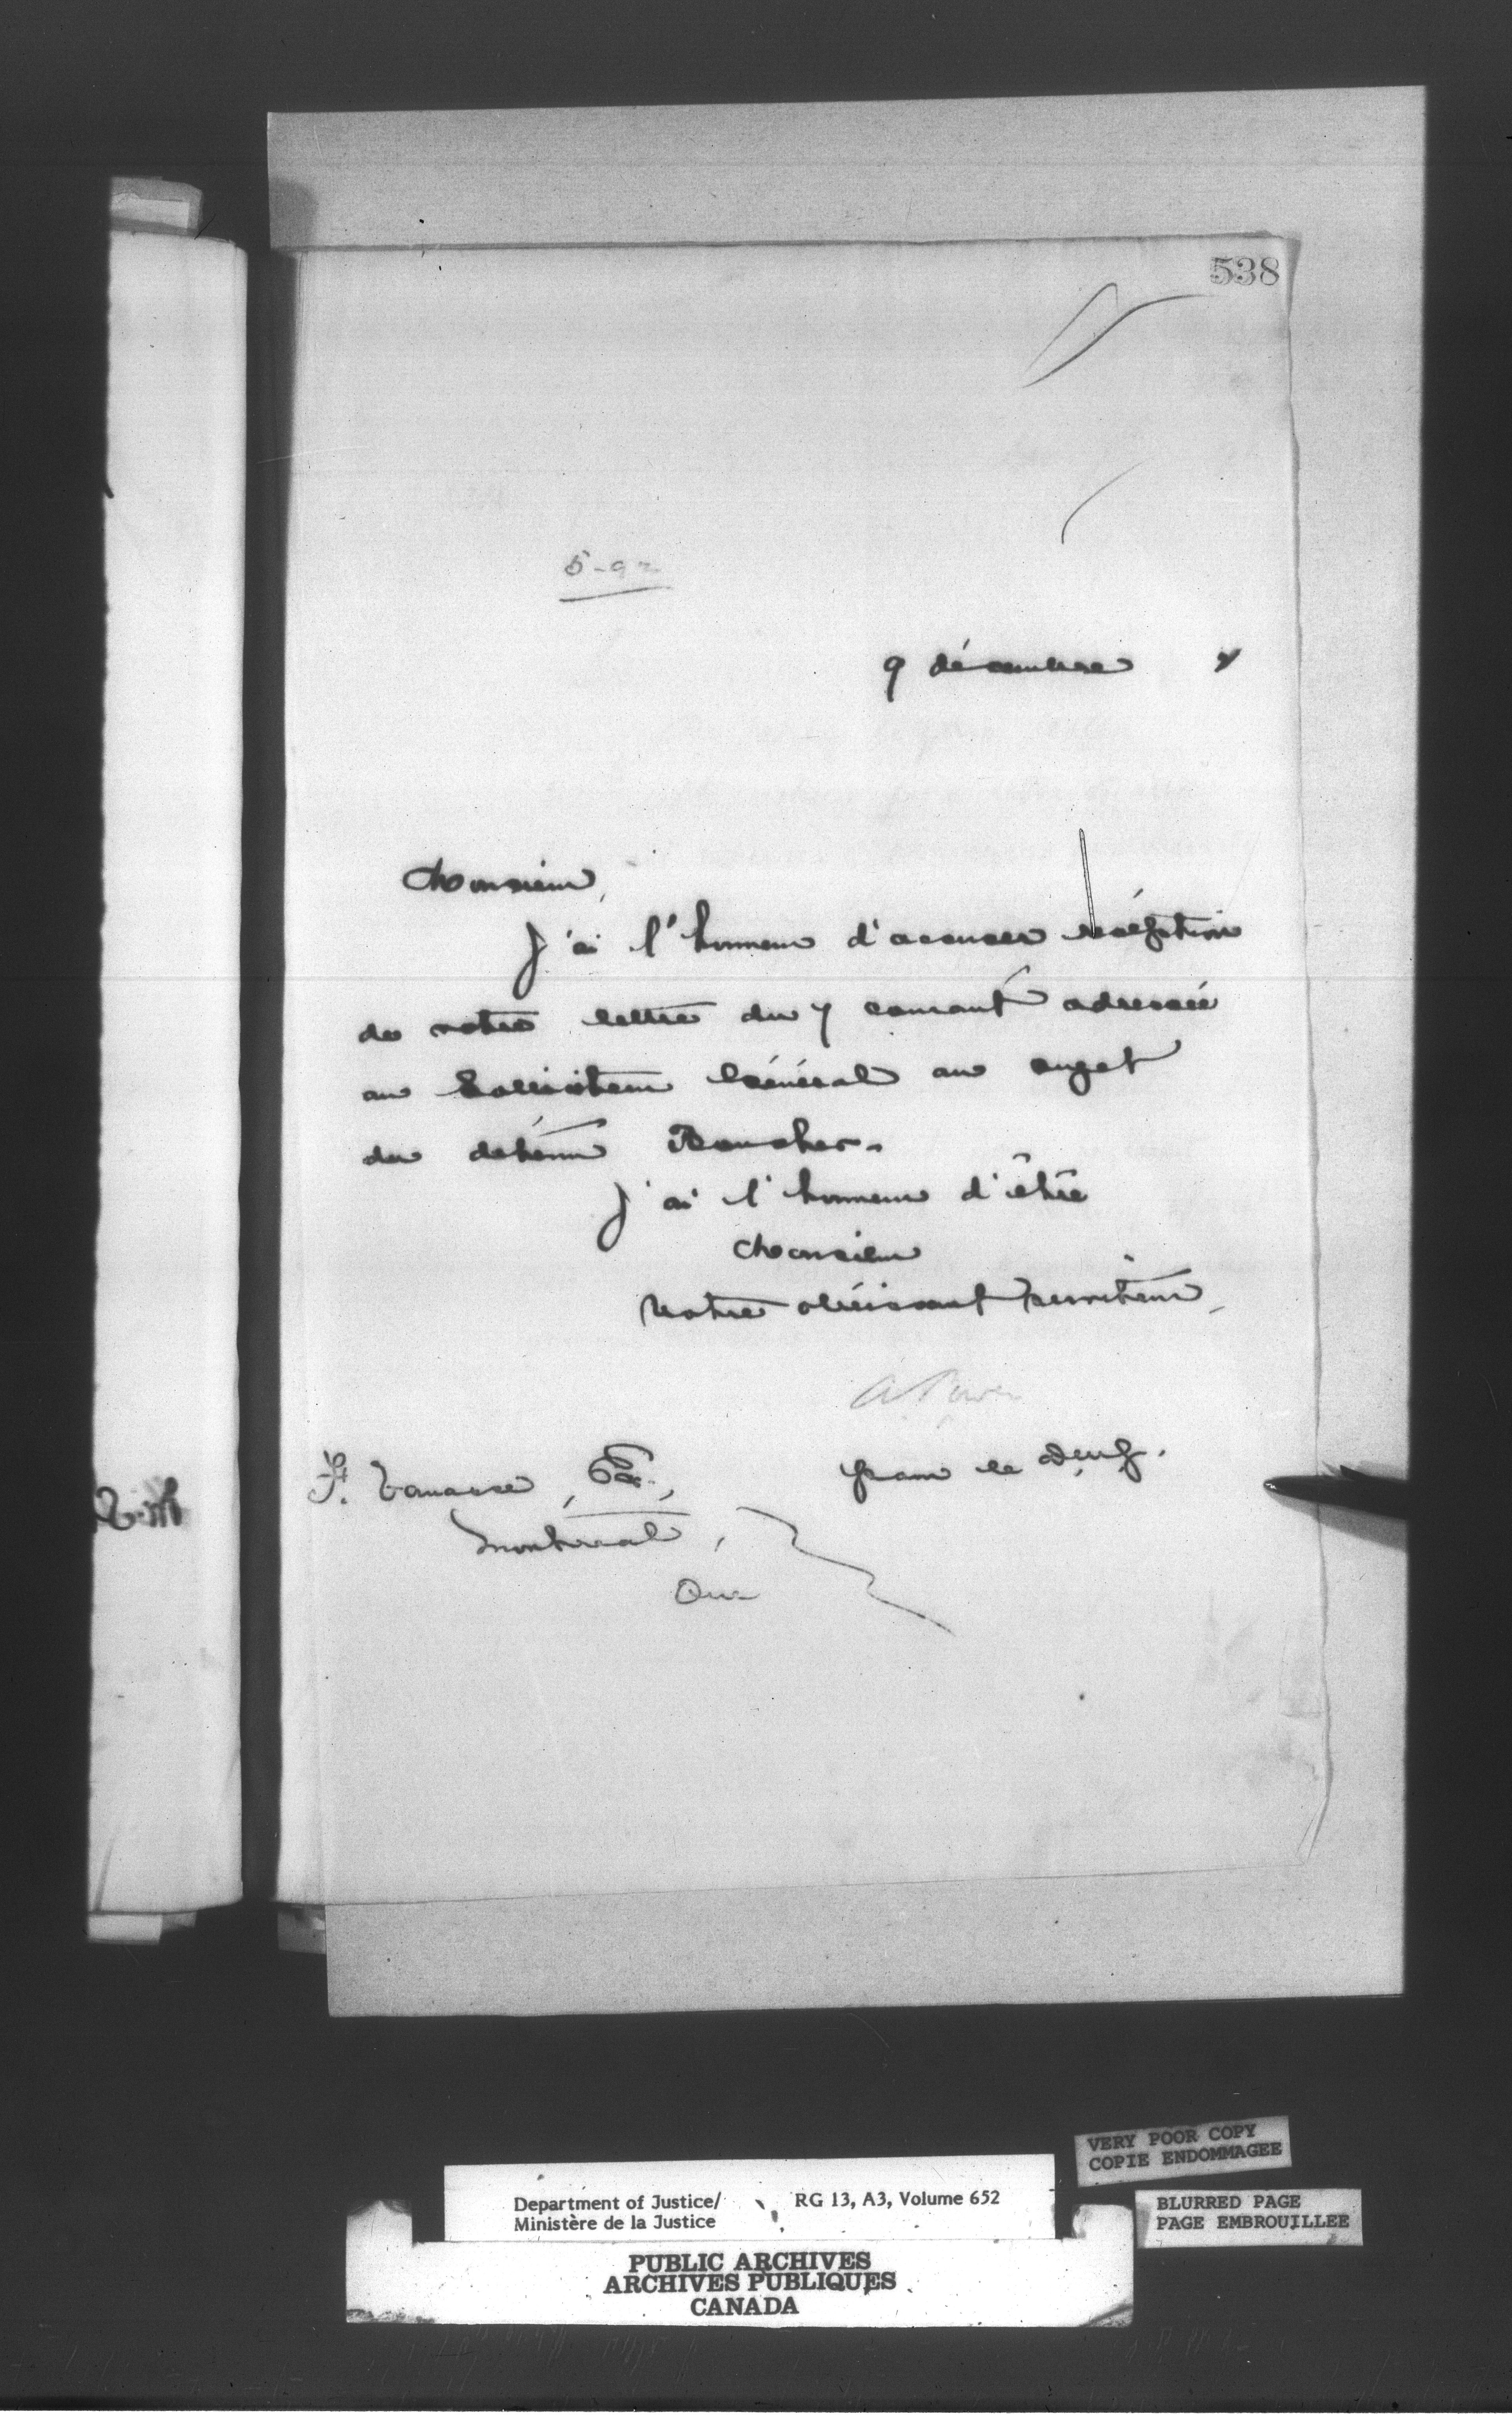 538
5-92
9 décembre 7
Monsieur,
J'ai l'honneur d'accuser réception
de votre lettre du 7 courant adressée
au Solliciteur Général au sujet
du détenu Boucher.
J'ai l'honneur d'être
Monsieur
Votre obéissant serviteur,
A Power
pour le dép.
F. Vanasse, Ecr.,
Montreal,
Que
VERY POOR COPY
COPIE ENDOMMAGEE
Department of Justice/ RG 13, A3, Volume 652
Ministère de la Justice
BLURRED PAGE
PAGE EMBROUILLEE
PUBLIC ARCHIVES
ARCHIVES PUBLIQUES
CANADA